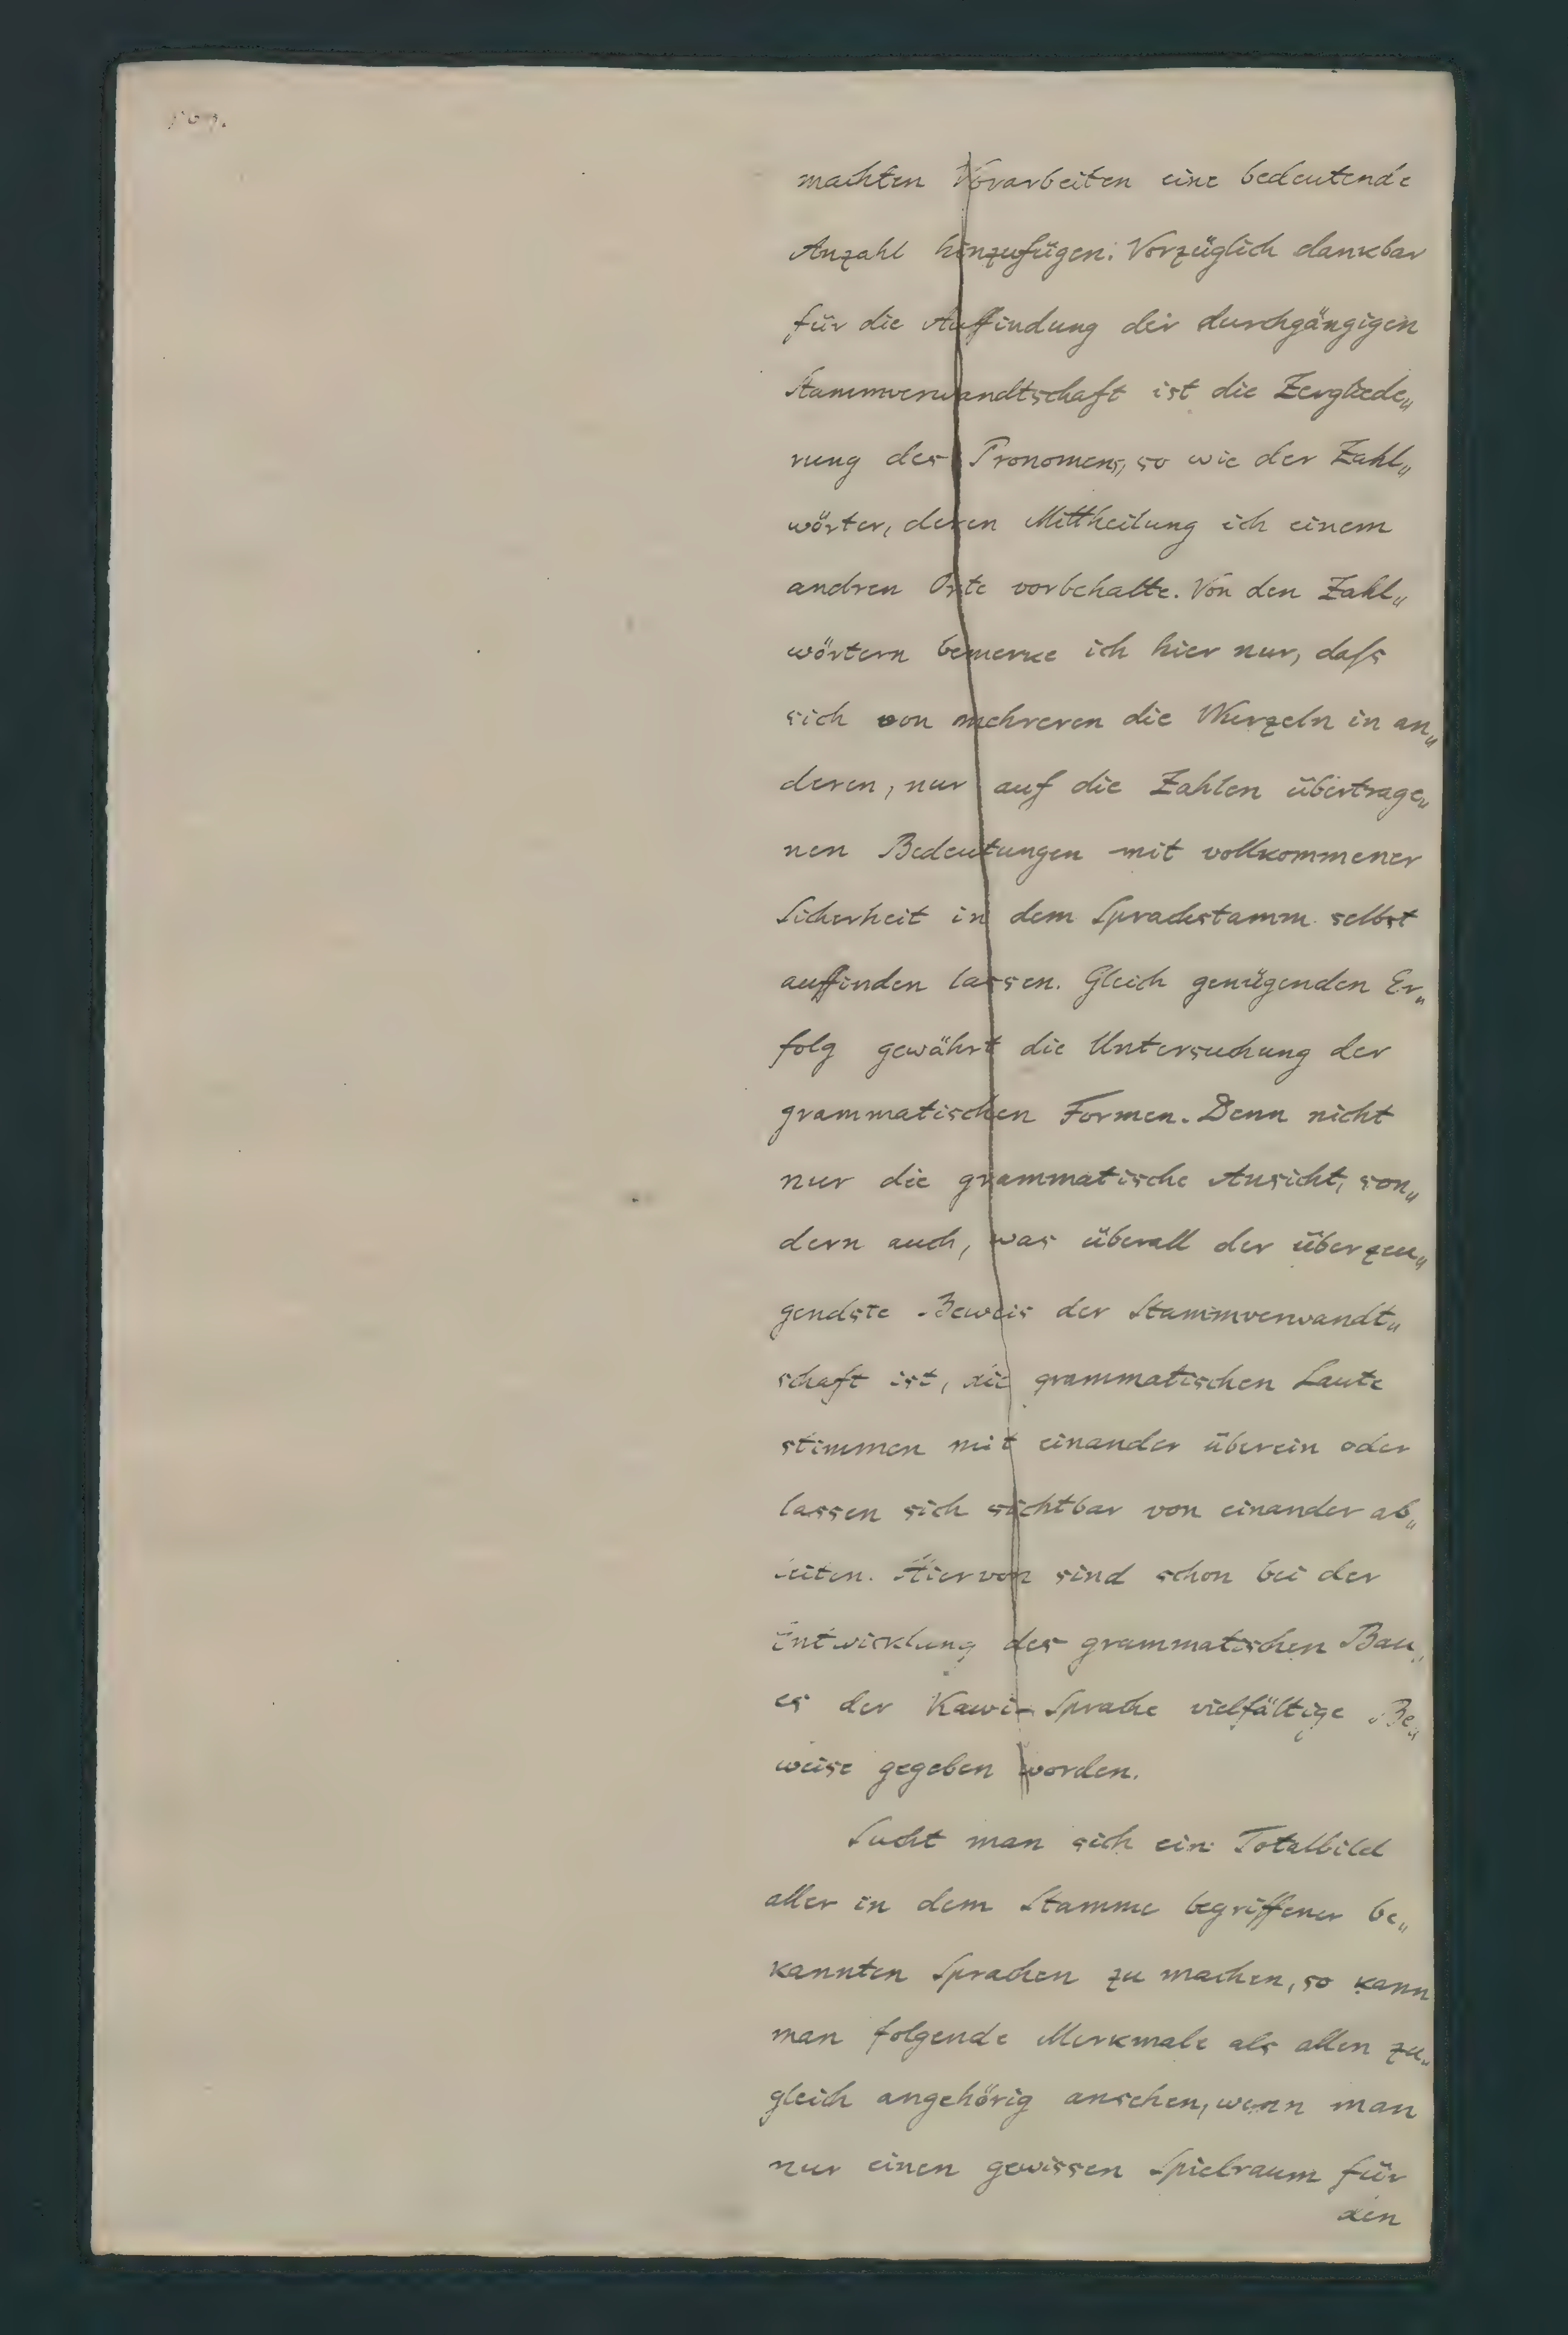 machten Vorarbeiten eine bedeutende
Anzahl hinzufügen. Vorzüglich dankbar
für die Auffindung der durchgängigen
Stammverwandtschaft ist die Zergliede„
rung des Pronomens, so wie der Zahl„
wörter, deren Mittheilung ich einem
andren Orte vorbehalte. Von den Zahl„
wörtern bemerke ich hier nur, daſs
sich von mehreren die Wurzeln in an„
deren, nur auf die Zahlen übertrage„
nen Bedeutungen mit vollkommener
Sicherheit in dem Sprachstamm selbst
auffinden lassen. Gleich genügenden Er„
folg gewährt die Untersuchung der
grammatischen Formen. Denn nicht
nur die grammatische Ansicht, son„
dern auch, was überall der überzeu„
gendste Beweis der Stammverwandt„
schaft ist, die grammatischen Laute
stimmen mit einander überein oder
lassen sich sichtbar von einander ab„
leiten. Hiervon sind schon bei der
Entwicklung des grammatischen Bau„
es der Kawi-Sprache vielfältige Be„
weise gegeben worden.
Sucht man sich ein Totalbild
aller in dem Stamme begriffener be„
kannten Sprachen zu machen, so kann
man folgende Merkmale als allen zu„
gleich angehörig ansehen, wenn man
nur einen gewissen Spielraum für
den